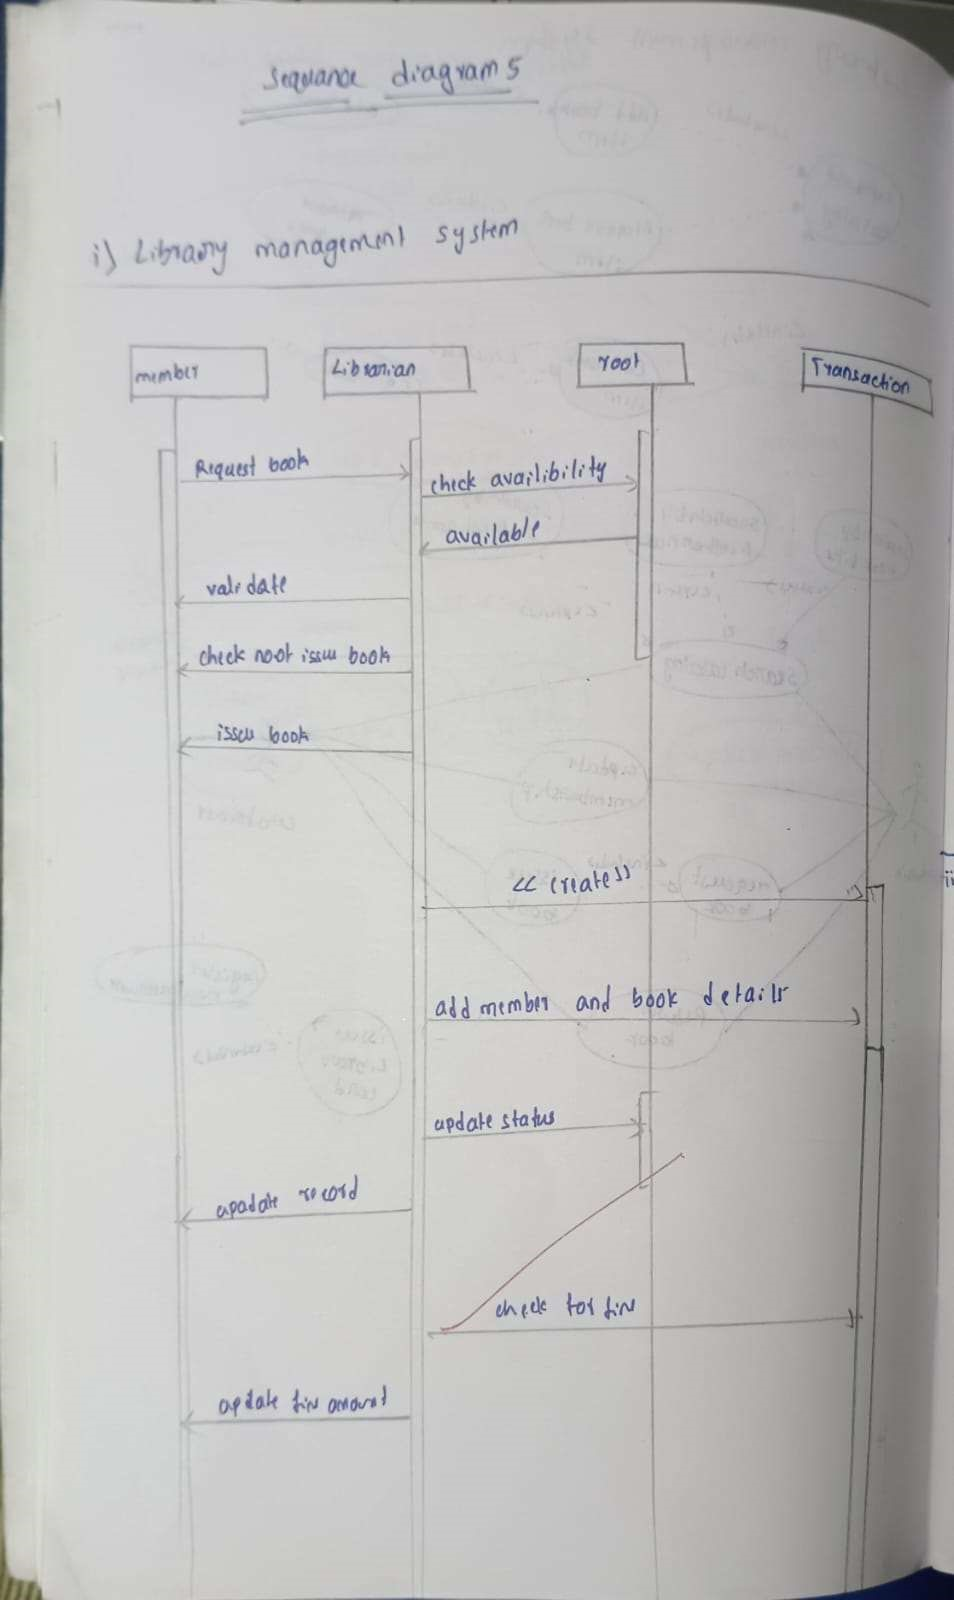 Sequance diagrams
i) Library management system
member
Librarian
root
Transaction
Request book
check availibility
available
validate
check noot issu book
issu book
<< create >>
add member and book details
update status
apadate record
check for fin
apdate fin amount